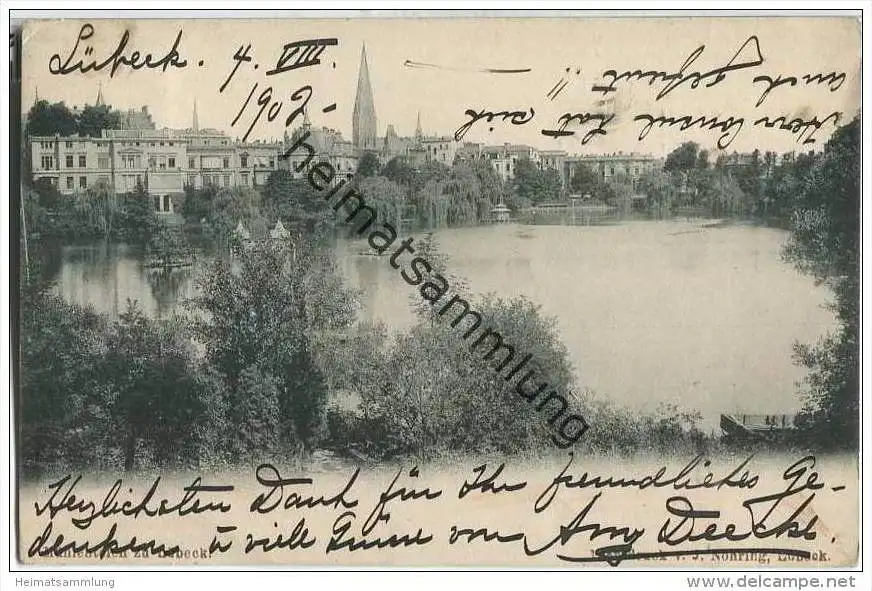 Lübeck. 4. VIII.
1902-
Herr Consul hat sich
auch gefreut !!
heimatsammlung
Herzlichsten Dank für Ihr freundliches Ge-
denken u viele Grüsse von Amy Deecke.
Mühlenteich zu Lübeck.
Neudruck v. J. Nöhring, Lübeck.
Heimatsammlung
www.delcampe.net